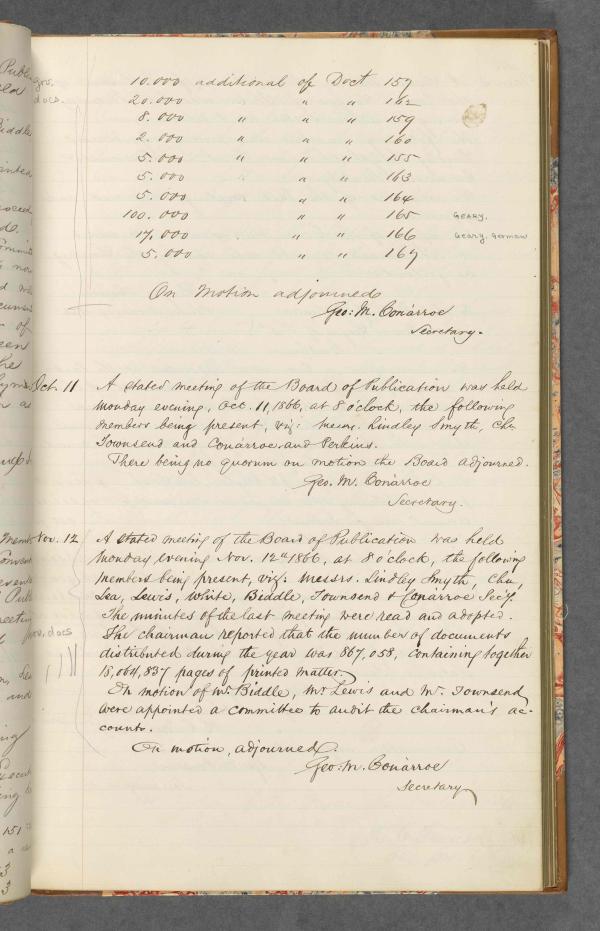 10.000 additional of Doct 157
20.000 " " 162
8.000 " " " 159
2.000 " " " 160
5.000 " " " 155
5.000 " " " 163
5.000 " " 164
100.000 " " 165 GEARY.
17.000 " " 166 Geary, German
5.000 " " 167
On motion adjourned
Geo: M. Conarroe
Secretary.
Oct. 11 A stated meeting of the Board of Publication was held
monday evening, Oct. 11, 1866, at 8 o'clock, the following
members being present, viz: Messrs. Lindley Smyth, Chn
Townsend and Conarroe and Perkins.
There being no quorum on motion the Board adjourned.
Geo. M. Conarroe
Secretary.
Nov. 12 A stated meeting of the Board of Publication was held
monday evening Nov. 12th 1866, at 8 o'clock, the following
members being present, viz: Messrs. Lindley Smyth, Chn,
Lea, Lewis, White, Biddle, Townsend & Conarroe Sec'y.
The minutes of the last meeting were read and adopted.
The chairman reported that the number of documents
distributed during the year was 867,058, containing together
18,064,837 pages of printed matter.
On motion of Mr Biddle, Mr Lewis and Mr. Townsend
were appointed a committee to audit the chairman's ac-
counts.
On motion, adjourned.
Geo: M. Conarroe
Secretary